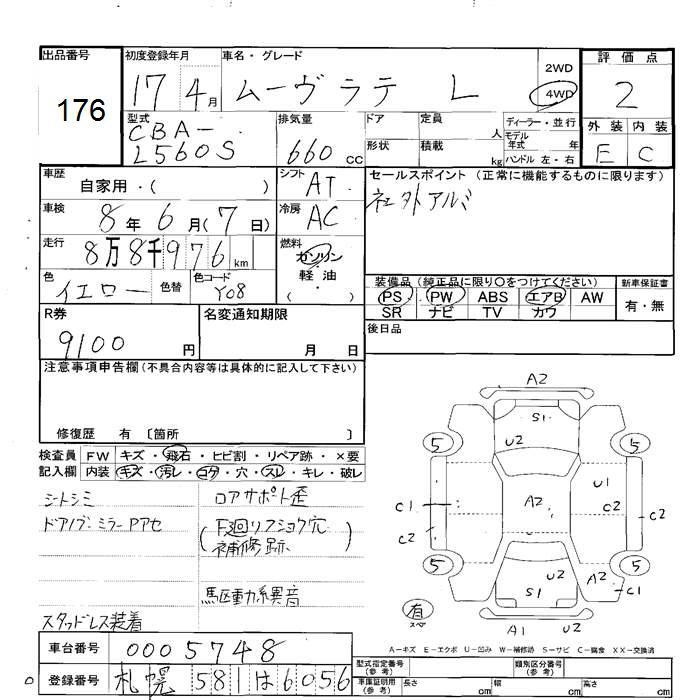 出品番号 初度登録年月 車名・グレード 評価点
176 17 4月 ムーヴラテ L 2WD 4WD 2
型式 排気量 ドア 定員 人 ディーラー・並行 外装 内装
CBA-L560S 660cc 形状 積載 kg モデル年式 年 E C
ハンドル 左・右
車歴 シフト セールスポイント (正常に機能するものに限ります)
自家用・( ) AT 社外アルミ
車検 8年6月(7日) 冷房 AC
走行 8万8千976km 燃料 ガソリン
軽油
( )
色 イエロー 色替 色コード Y08
装備品 (純正品に限り○をつけてください) 新車保証書
PS PW ABS エアB AW 有・無
SR ナビ TV カワ
R券 名変通知期限 後日品
9100円 月 日
注意事項申告欄(不具合内容等は具体的に記入して下さい)
修復歴 有 〔箇所 〕
検査員 FW キズ・飛石・ヒビ割・リペア跡・×要
記入欄 内装 キズ・汚レ・コゲ・穴・スレ・キレ・破レ
シートシミ ロアサポート歪
ドアノブ・ミラーPアセ (下廻リフショク穴
補修跡)
馬区動力系異音
スタッドレス装着
A2
S1
5 U2 5
U1
C1 A2 C2 C2
C2
5 U2 A2 5
S1 C1
有
スペ
A1 U2
A-キズ E-エクボ U-凹み W-補修跡 S-サビ C-腐食 XX-交換済
車台番号 0005748 型式指定番号(参考) 類別区分番号(参考)
登録番号 札幌 581 は 6056 車庫証明用(参考) 長さ cm 幅 cm 高さ cm